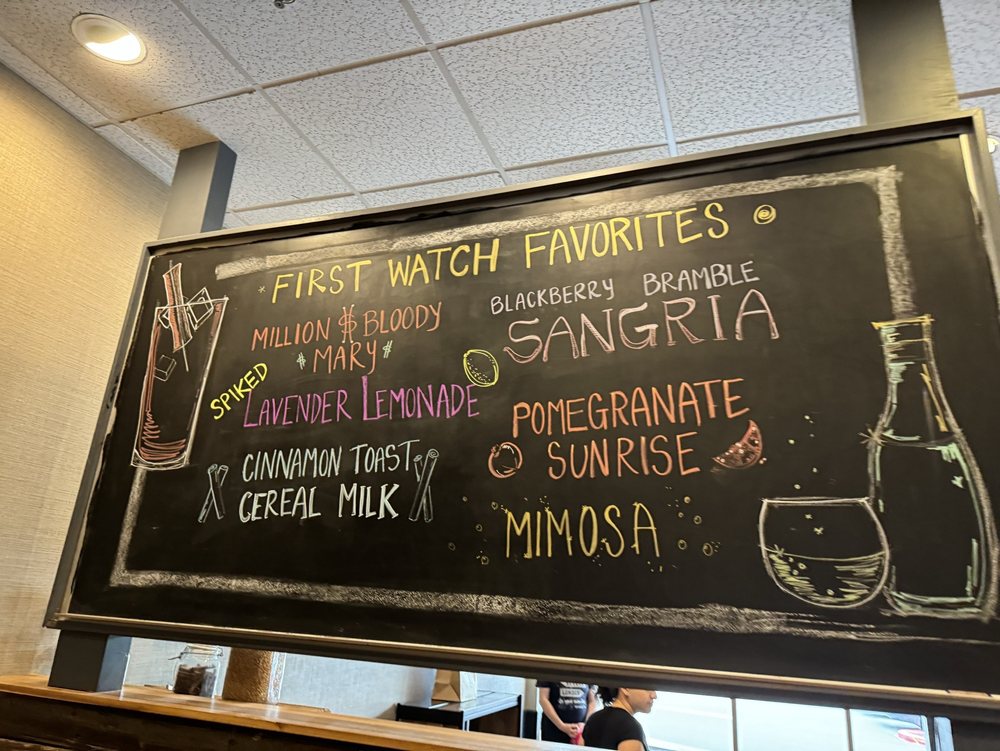 FIRST WATCH FAVORITES
MILLION $ BLOODY
$ MARY $
SPIKED
LAVENDER LEMONADE
CINNAMON TOAST
CEREAL MILK
BLACKBERRY BRAMBLE
SANGRIA
POMEGRANATE
SUNRISE
MIMOSA